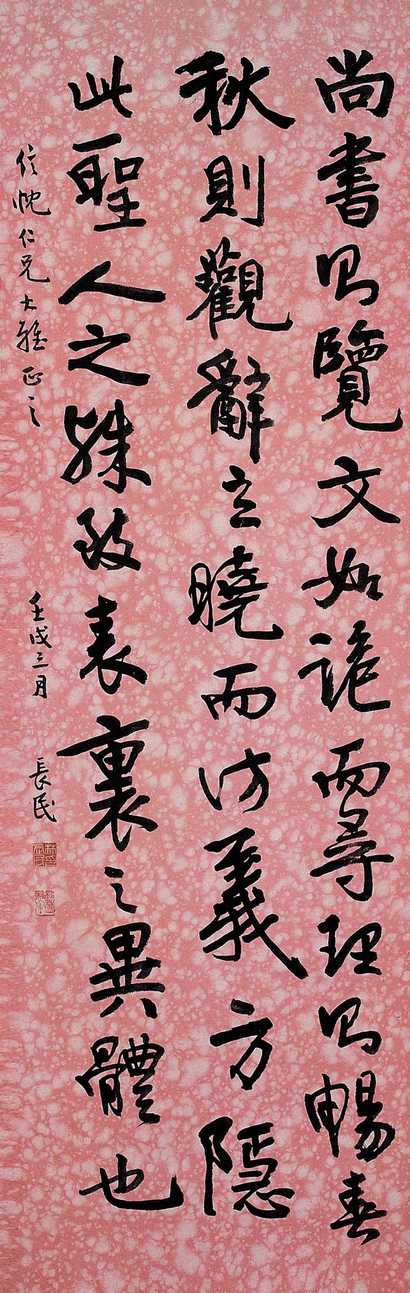 尚書則覽文如詭而尋理則暢春
秋則觀辭立曉而访義方隱
此聖人之殊致表裏之異體也
仁兄大雅正之
壬戌三月 長民